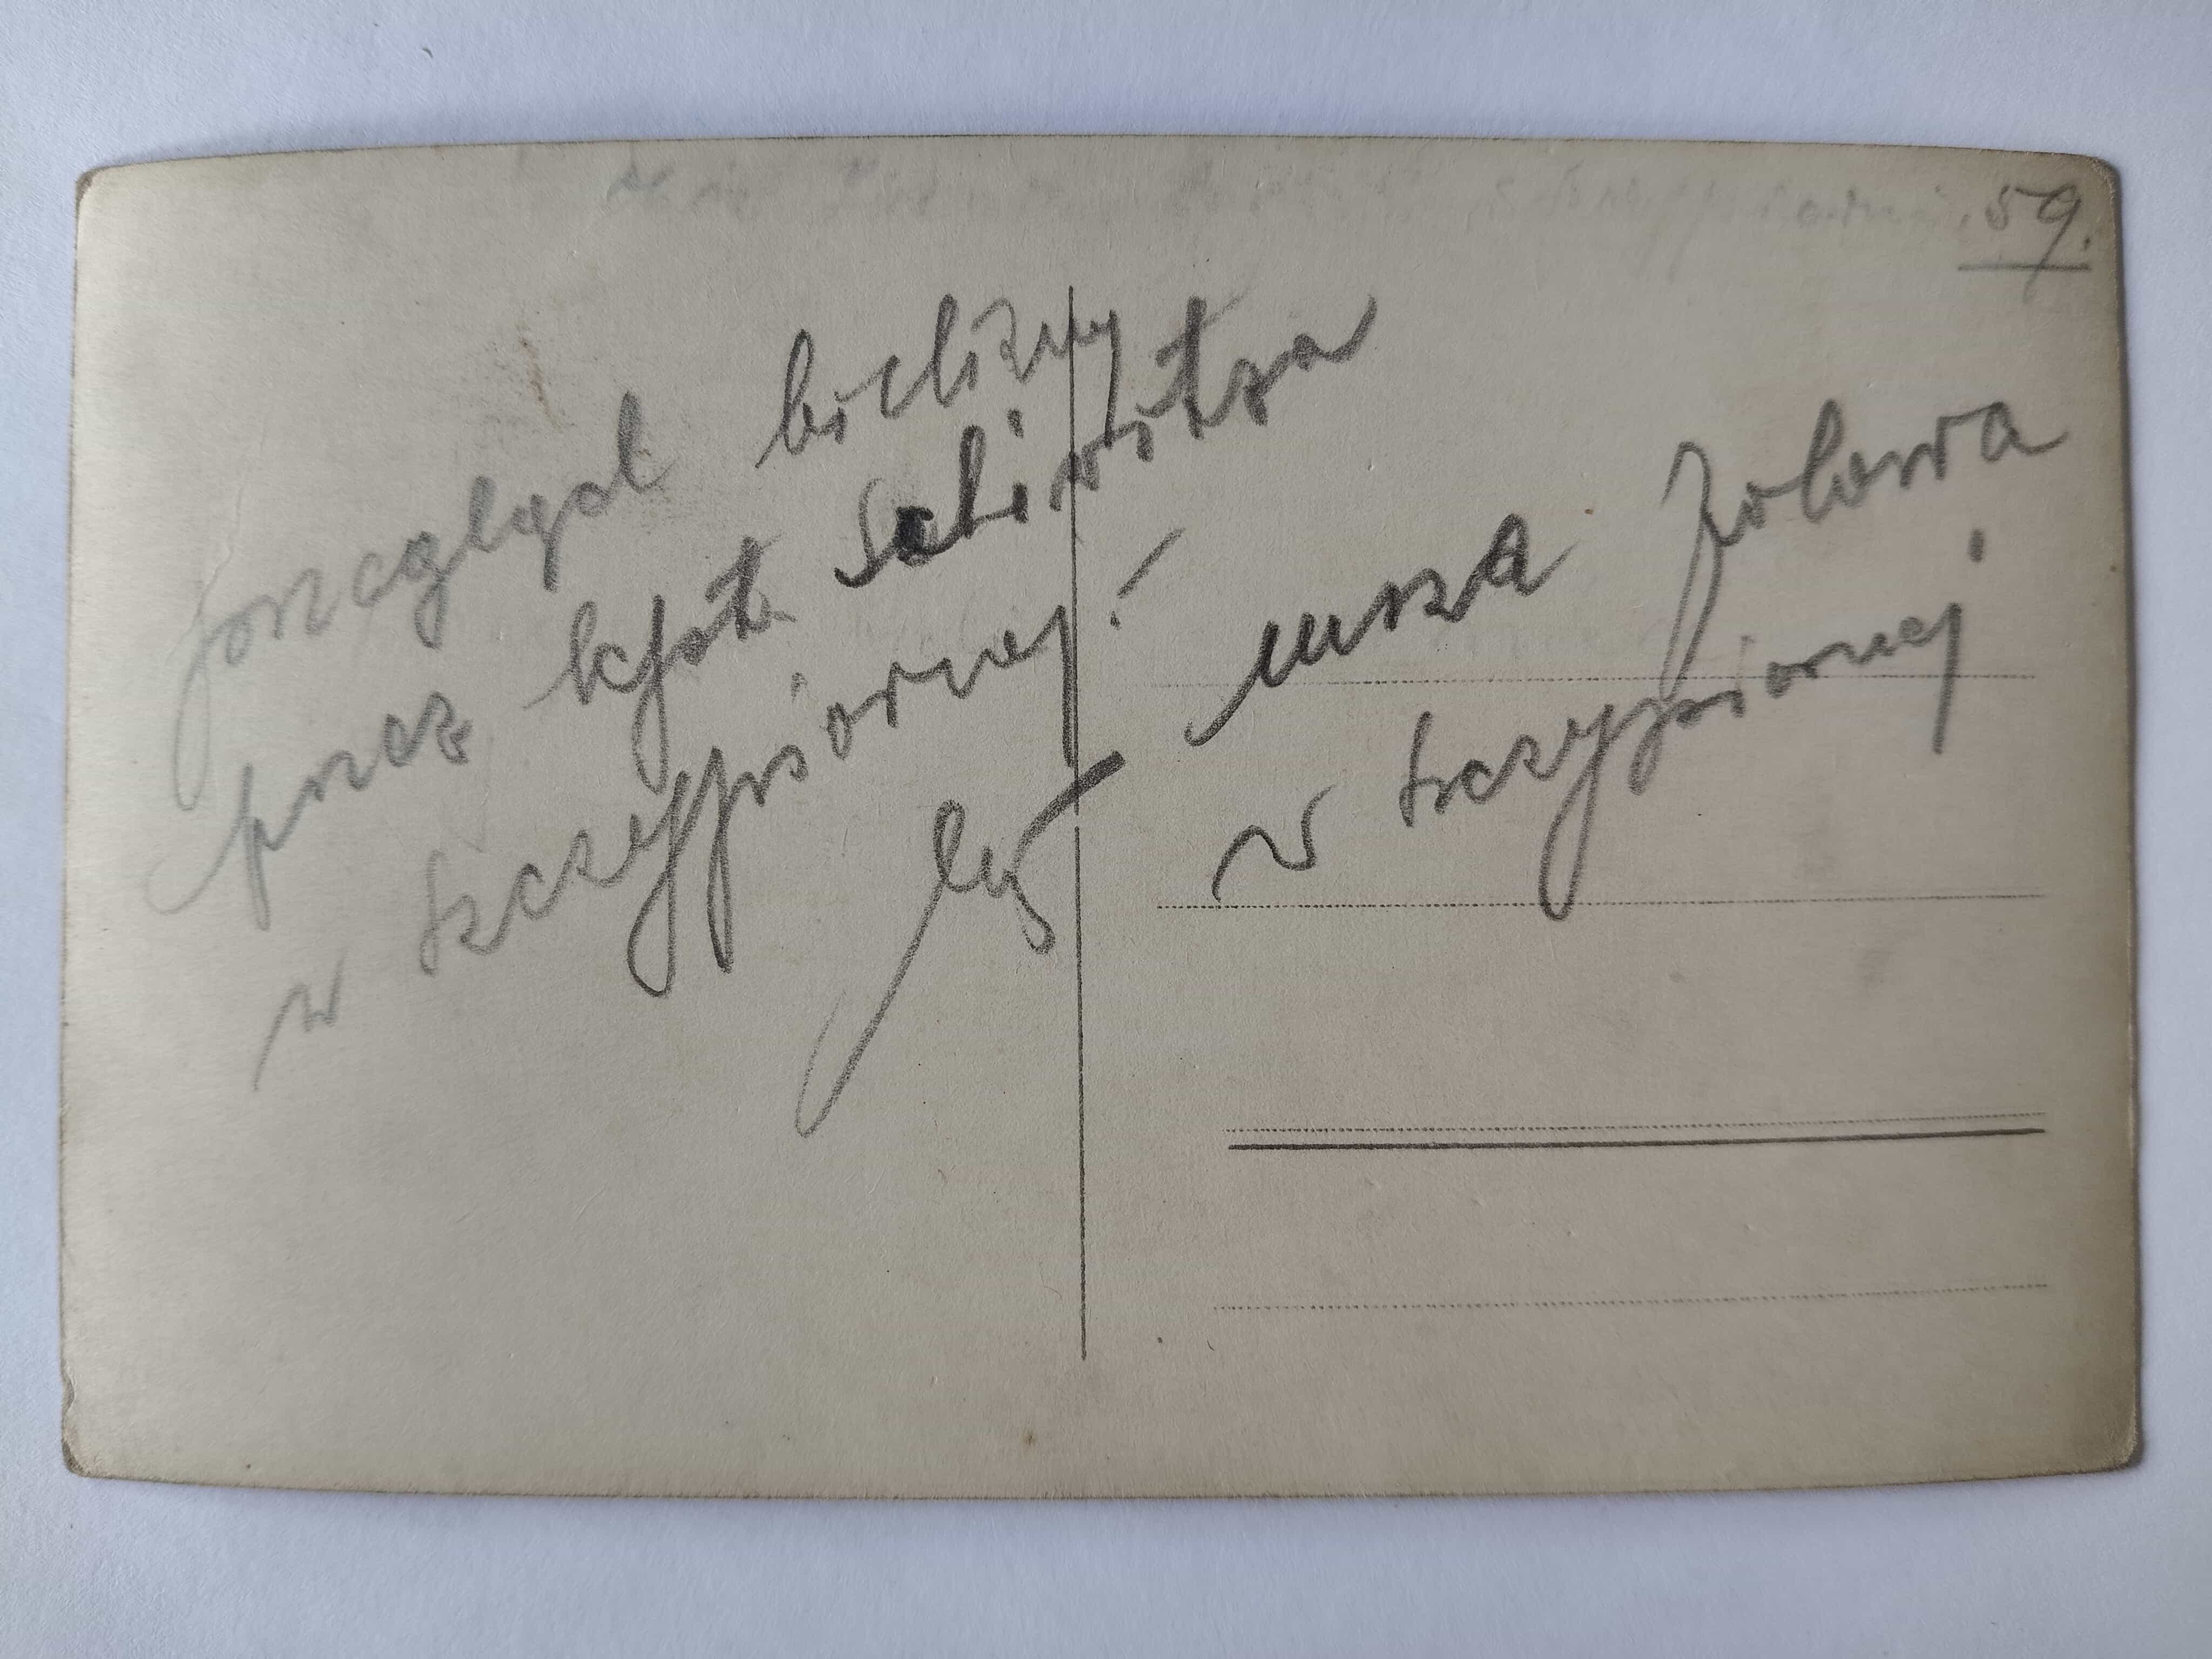 59.
przegląd bielizny
przez kpt. Schiwitza
w Szczypiornej.-
msza polowa
w Szczypiornej